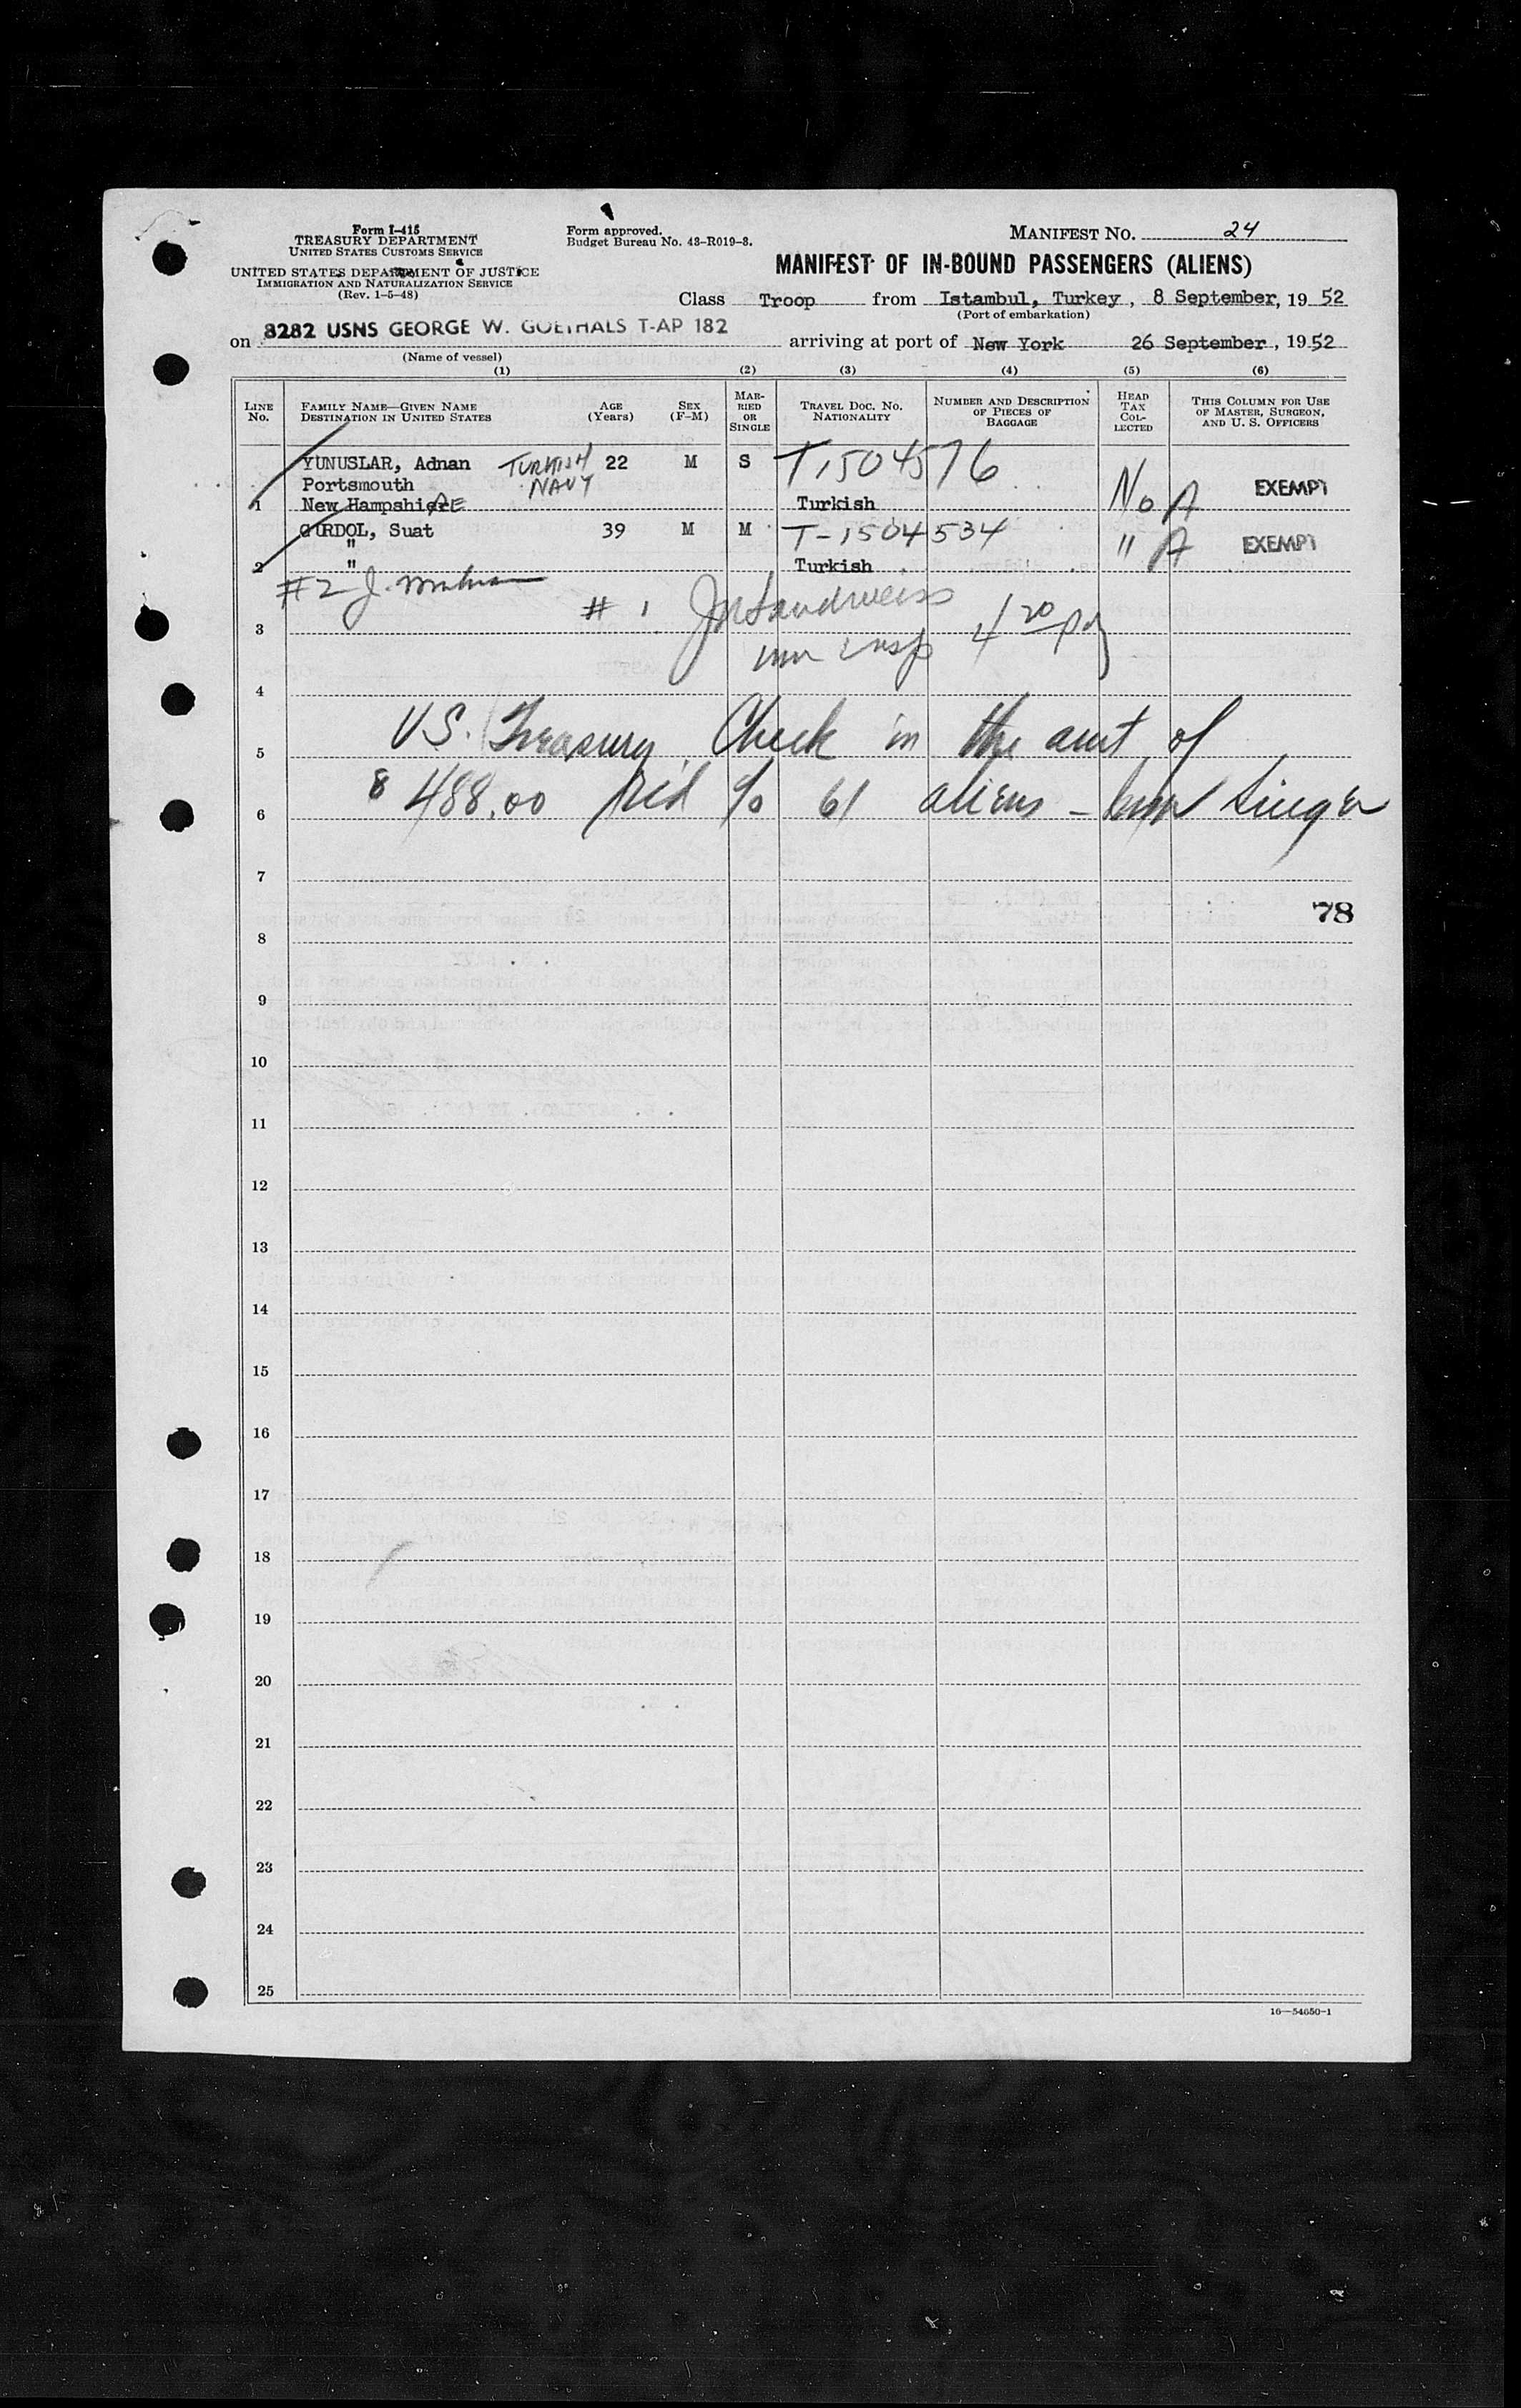 Form I-415
TREASURY DEPARTMENT
UNITED STATES CUSTOMS SERVICE
UNITED STATES DEPARTMENT OF JUSTICE
IMMIGRATION AND NATURALIZATION SERVICE
(Rev. 1-5-48)
Form approved.
Budget Bureau No. 43-R019-3.
MANIFEST NO. 24
MANIFEST OF IN-BOUND PASSENGERS (ALIENS)
Class Troop from Istambul, Turkey, 8 September, 1952
(Port of embarkation)
on 8282 USNS GEORGE W. GOETHALS T-AP 182 arriving at port of New York 26 September, 1952
(Name of vessel)
(1) (2) (3) (4) (5) (6)
LINE No. FAMILY NAME—GIVEN NAME DESTINATION IN UNITED STATES AGE (Years) SEX (F-M) MARRIED OR SINGLE TRAVEL DOC. NO. NATIONALITY NUMBER AND DESCRIPTION OF PIECES OF BAGGAGE HEAD TAX COLLECTED THIS COLUMN FOR USE OF MASTER, SURGEON, AND U. S. OFFICERS
YUNUSLAR, Adnan TURKISH NAVY 22 M S T1504576
Portsmouth
1 New Hampshire Turkish No A EXEMPT
GURDOL, Suat 39 M M T-1504534
"
2 " Turkish " A EXEMPT
#2 J.
# 1 Sandweiss
3
Imm Insp 4 20
4
5 U.S. Treasury Check in the amt of
6 $488.00 rec'd c/o 61 aliens - Singer
7
78
8
9
10
11
12
13
14
15
16
17
18
19
20
21
22
23
24
25
16—54650-1